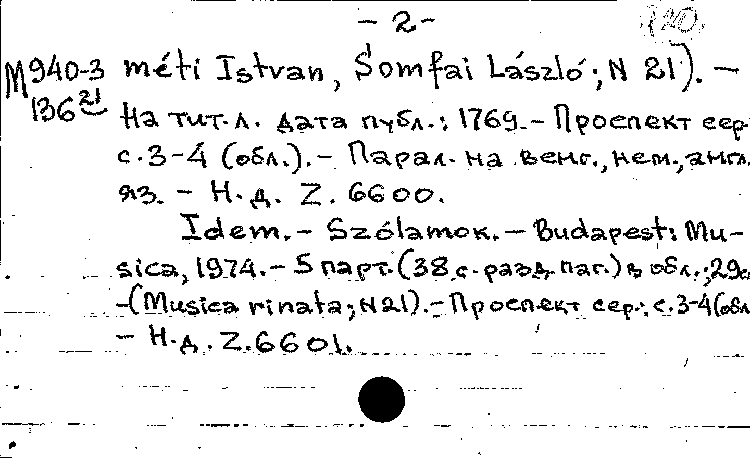 - 2 -
М940-3 méti Istvan, Somfai László; N 21). –
136 21 На тит. л. дата публ.: 1769. – Проспект сер.
с. 3-4 (обл.). – Парал. на венг., нем., англ.
яз. – Н. д. Z. 6600.
Idem. – Szólamok. – Budapest: Mu-
sica, 1974. – 5 парт. (38 с. разд. паг.) в обл.; 29с
– (Musica rinata; N21). – Проспект сер.: с. 3-4 (обл
– Н. д. Z. 6601.